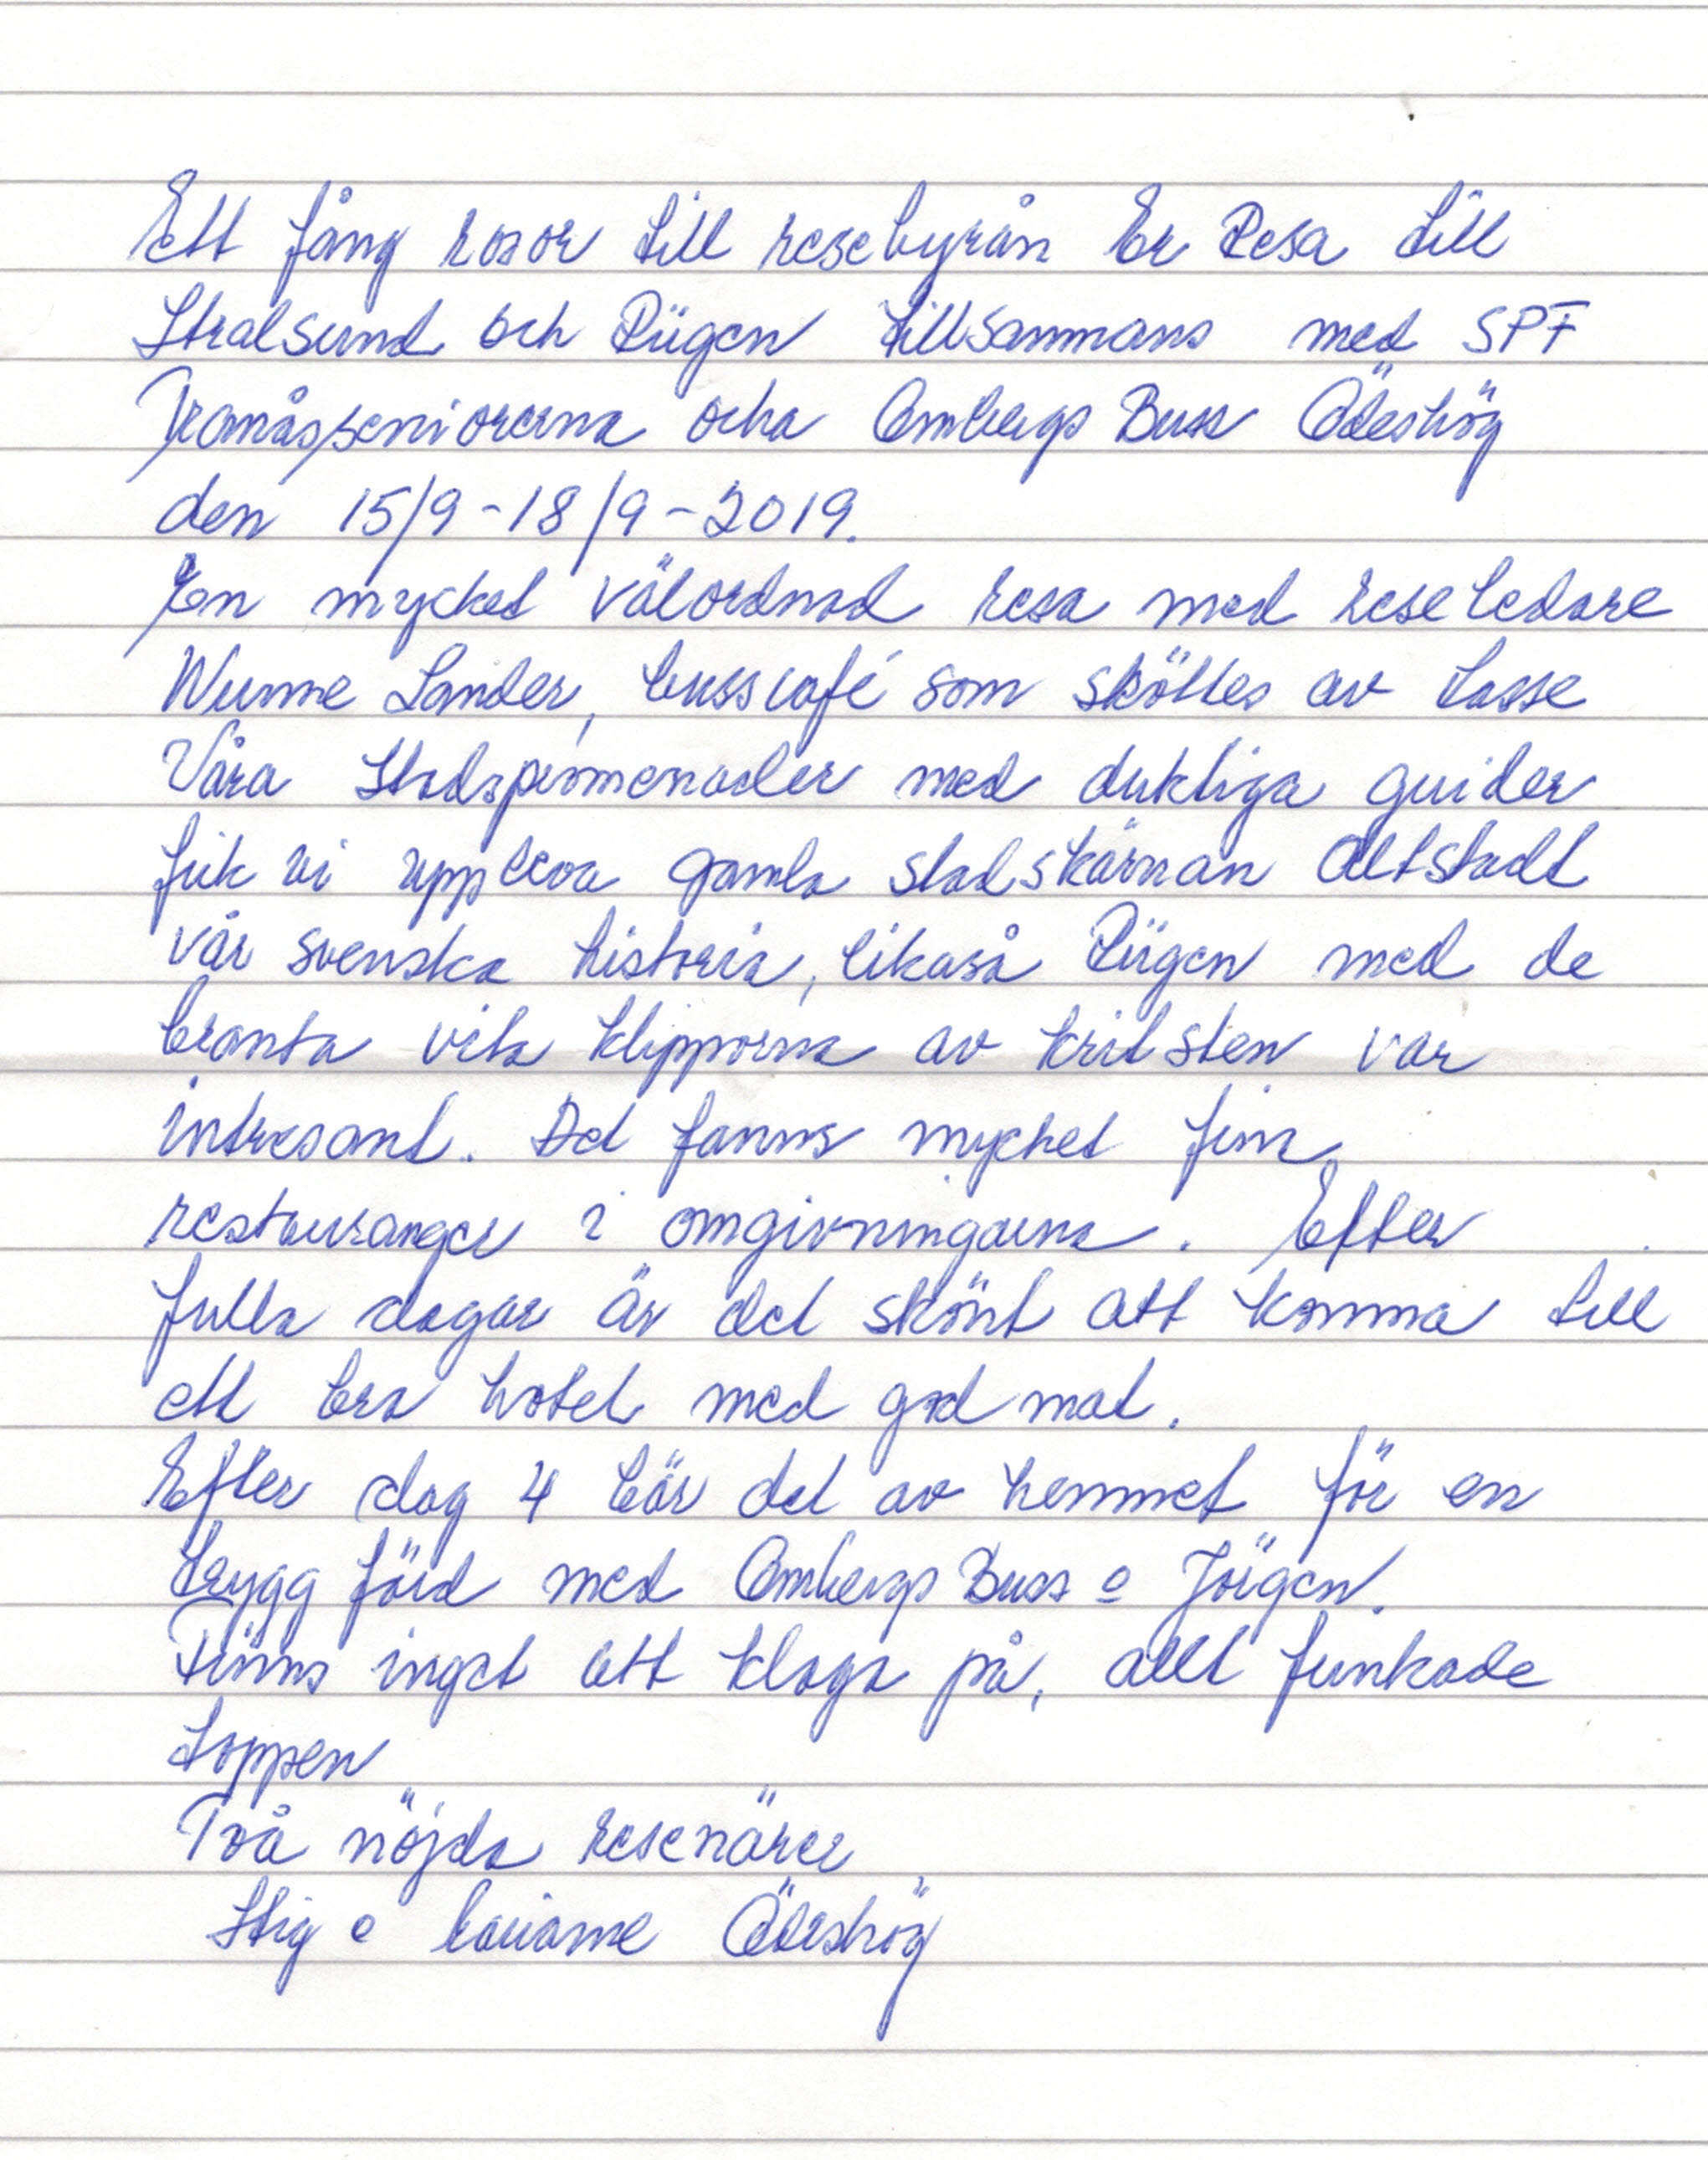 Ett fång rosor till resebyrån Er Resa till
Stralsund och Rügen tillsammans med SPF
Tranåsseniorerna ocha Ombergs Buss Ödeshög
den 15/9-18/9-2019.
En mycket välordnad resa med reseledare
Lander, busscafé som sköttes av Lasse
Våra Stadspromenader med duktiga guider
fick vi uppleva gamla stadskärnan Altstadt
vår svenska historia, likaså Rügen med de
branta vita klipporna av kritsten var
intresant. Det fanns mycket fina
restauranger i omgivningarna. Efter
fulla dagar är det skönt att komma till
ett bra hotel med god mat.
Efter dag 4 bär det av hemmet för en
trygg färd med Ombergs Buss o Jörgen.
Finns inget att klaga på, allt funkade
toppen
Två nöjda resenärer
Stig o Ödeshög